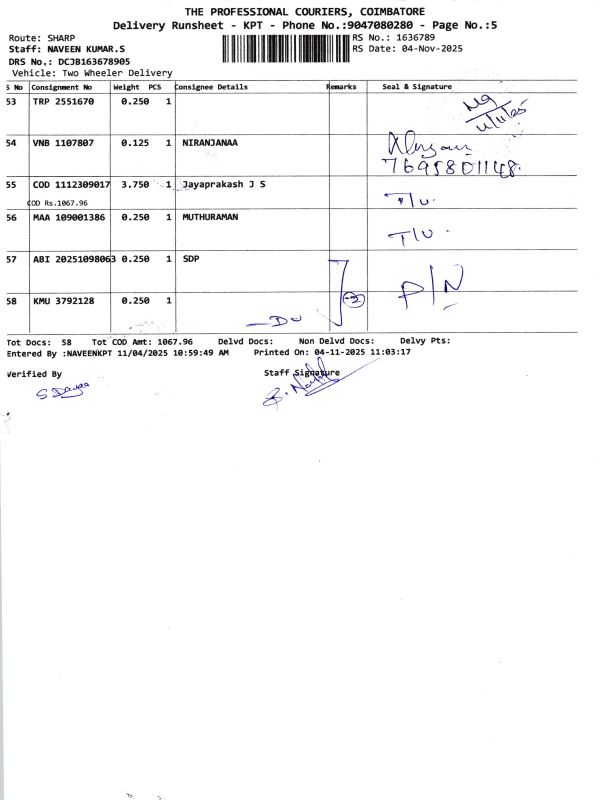 THE PROFESSIONAL COURIERS, COIMBATORE
Delivery Runsheet - KPT - Phone No.:9047080280 - Page No.:5
Route: SHARP RS No.: 1636789
Staff: NAVEEN KUMAR.S RS Date: 04-Nov-2025
DRS No.: DCJB163678905
Vehicle: Two Wheeler Delivery
S No Consignment No Weight PCS Consignee Details Remarks Seal & Signature
53 TRP 2551670 0.250 1
54 VNB 1107807 0.125 1 NIRANJANAA
7695801148
55 COD 1112309017 3.750 1 Jayaprakash J S
COD Rs.1067.96
T/U.
56 MAA 109001386 0.250 1 MUTHURAMAN
T/U.
57 ABI 20251098063 0.250 1 SDP
P/N
58 KMU 3792128 0.250 1
Tot Docs: 58 Tot COD Amt: 1067.96 Delvd Docs: Non Delvd Docs: Delvy Pts:
Entered By :NAVEENKPT 11/04/2025 10:59:49 AM Printed On: 04-11-2025 11:03:17
Verified By Staff Signature